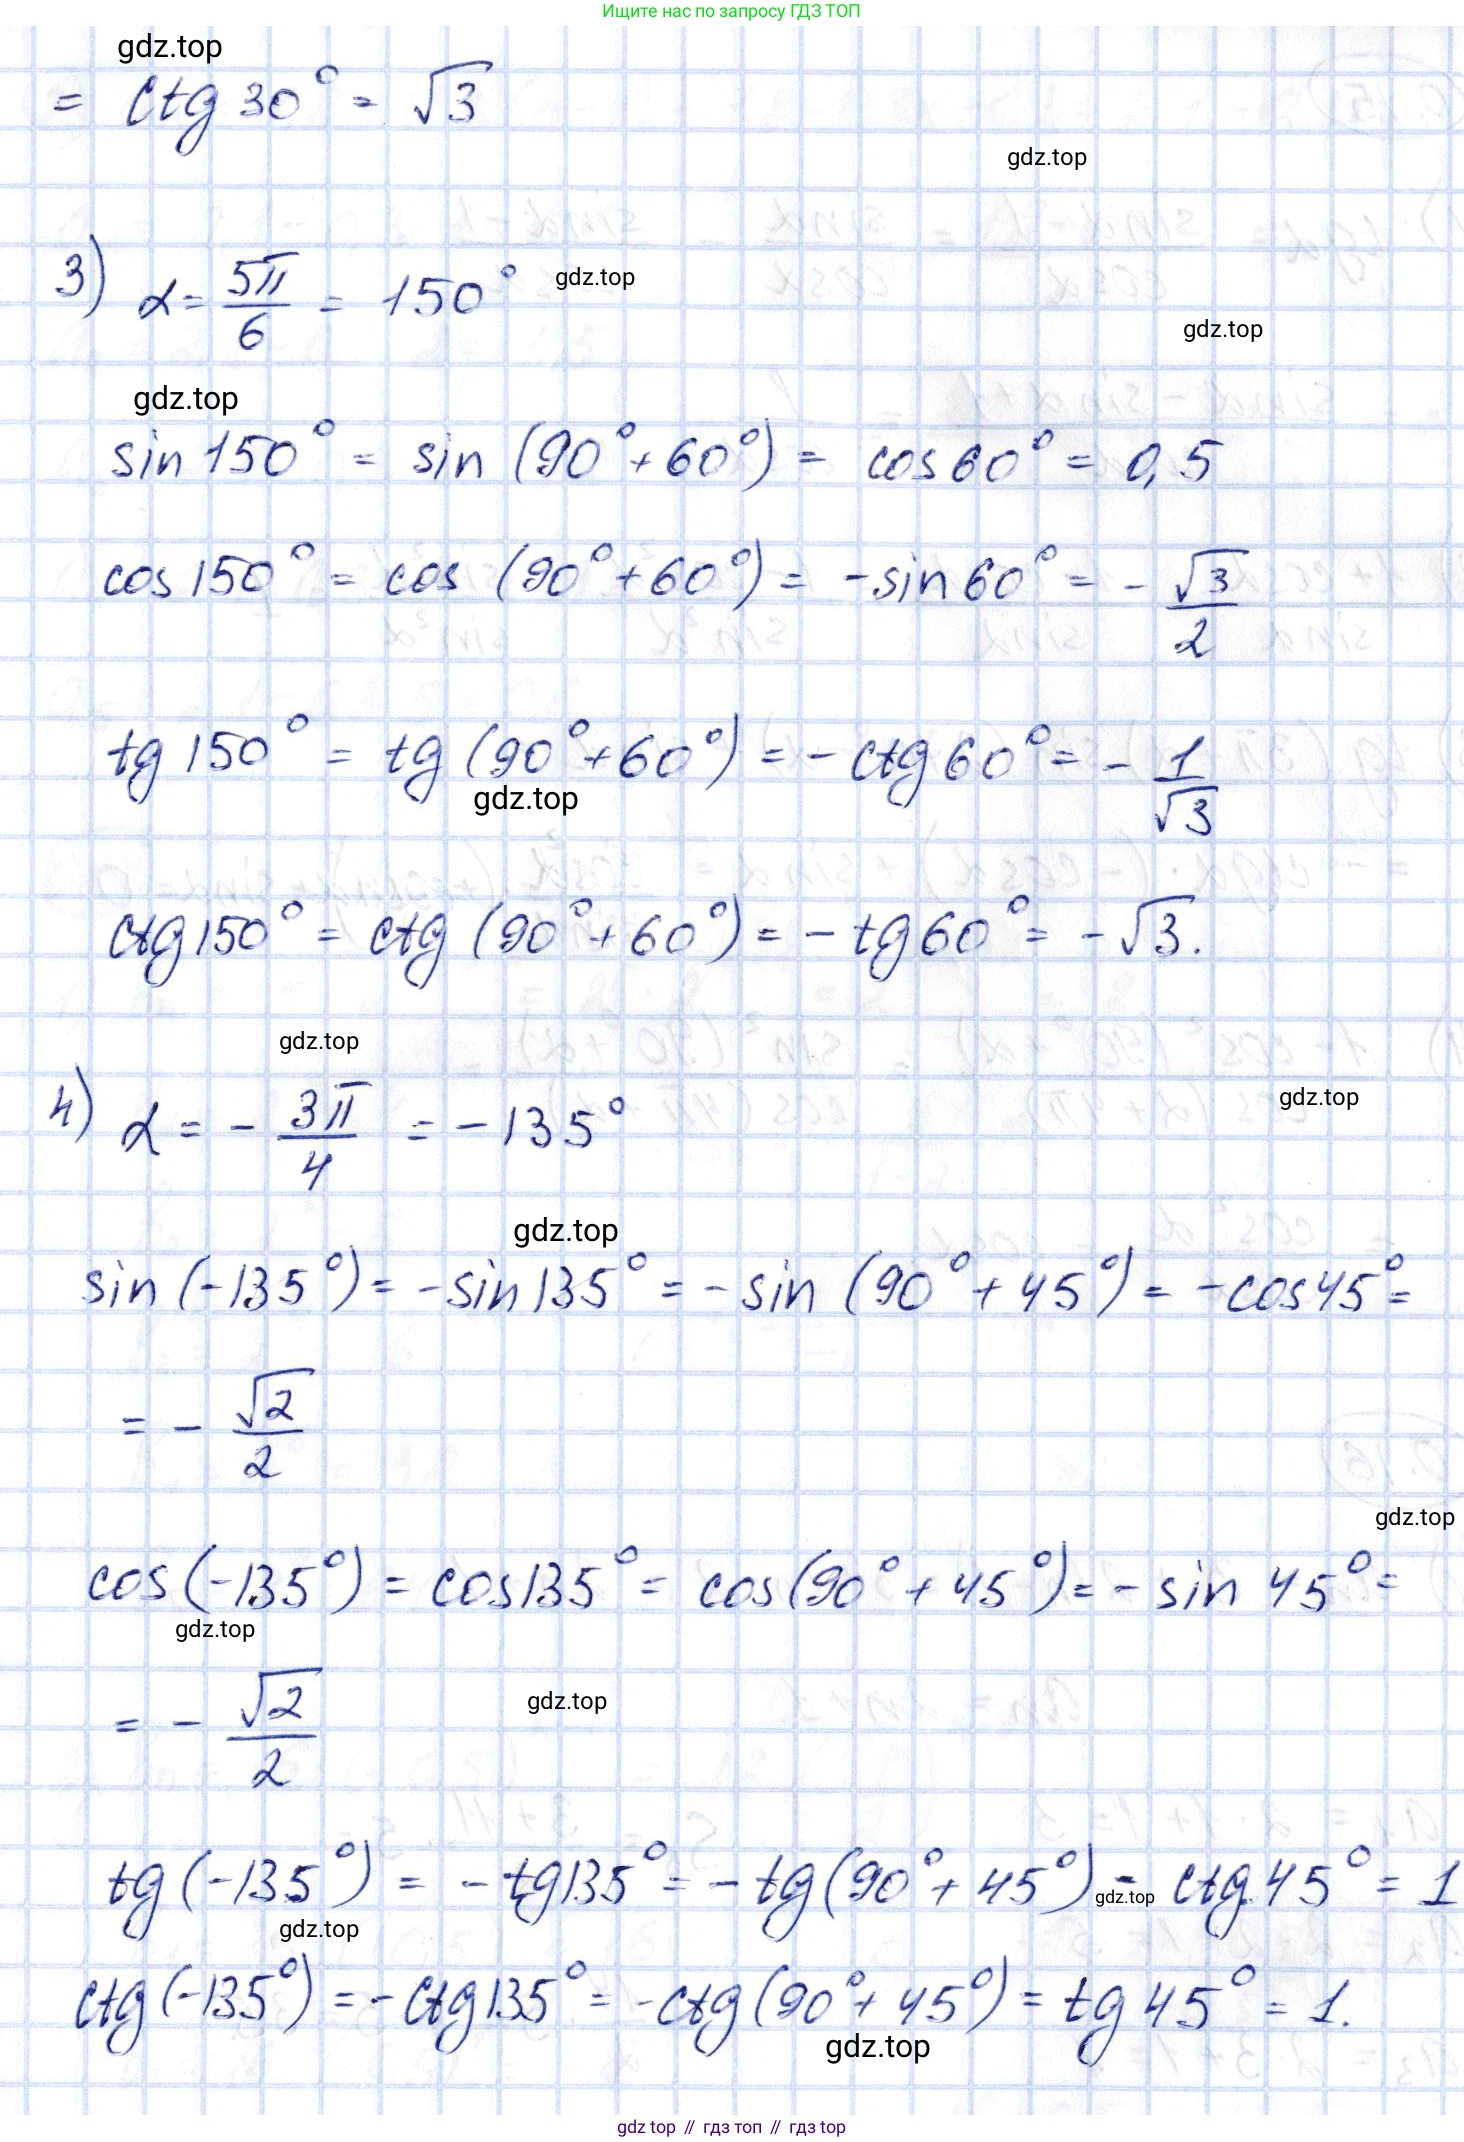 Ищите нас по запросу ГДЗ ТОП
gdz.top
= ctg 30° = √3
gdz.top
3) α = 5π/6 = 150°
gdz.top
gdz.top
gdz.top
sin 150° = sin (90° + 60°) = cos 60° = 0,5
cos 150° = cos (90° + 60°) = -sin 60° = - √3/2
tg 150° = tg (90° + 60°) = - ctg 60° = - 1/√3
gdz.top
ctg 150° = ctg (90° + 60°) = - tg 60° = - √3.
gdz.top
4) α = - 3π/4 = - 135°
gdz.top
gdz.top
sin (-135°) = -sin 135° = - sin (90° + 45°) = - cos 45° =
= - √2/2
gdz.top
cos (-135°) = cos 135° = cos (90° + 45°) = - sin 45° =
gdz.top
= - √2/2
gdz.top
tg (-135°) = - tg 135° = - tg (90° + 45°) = ctg 45° = 1
gdz.top
gdz.top
ctg (-135°) = - ctg 135° = - ctg (90° + 45°) = tg 45° = 1.
gdz.top
gdz top // гдз топ // gdz top